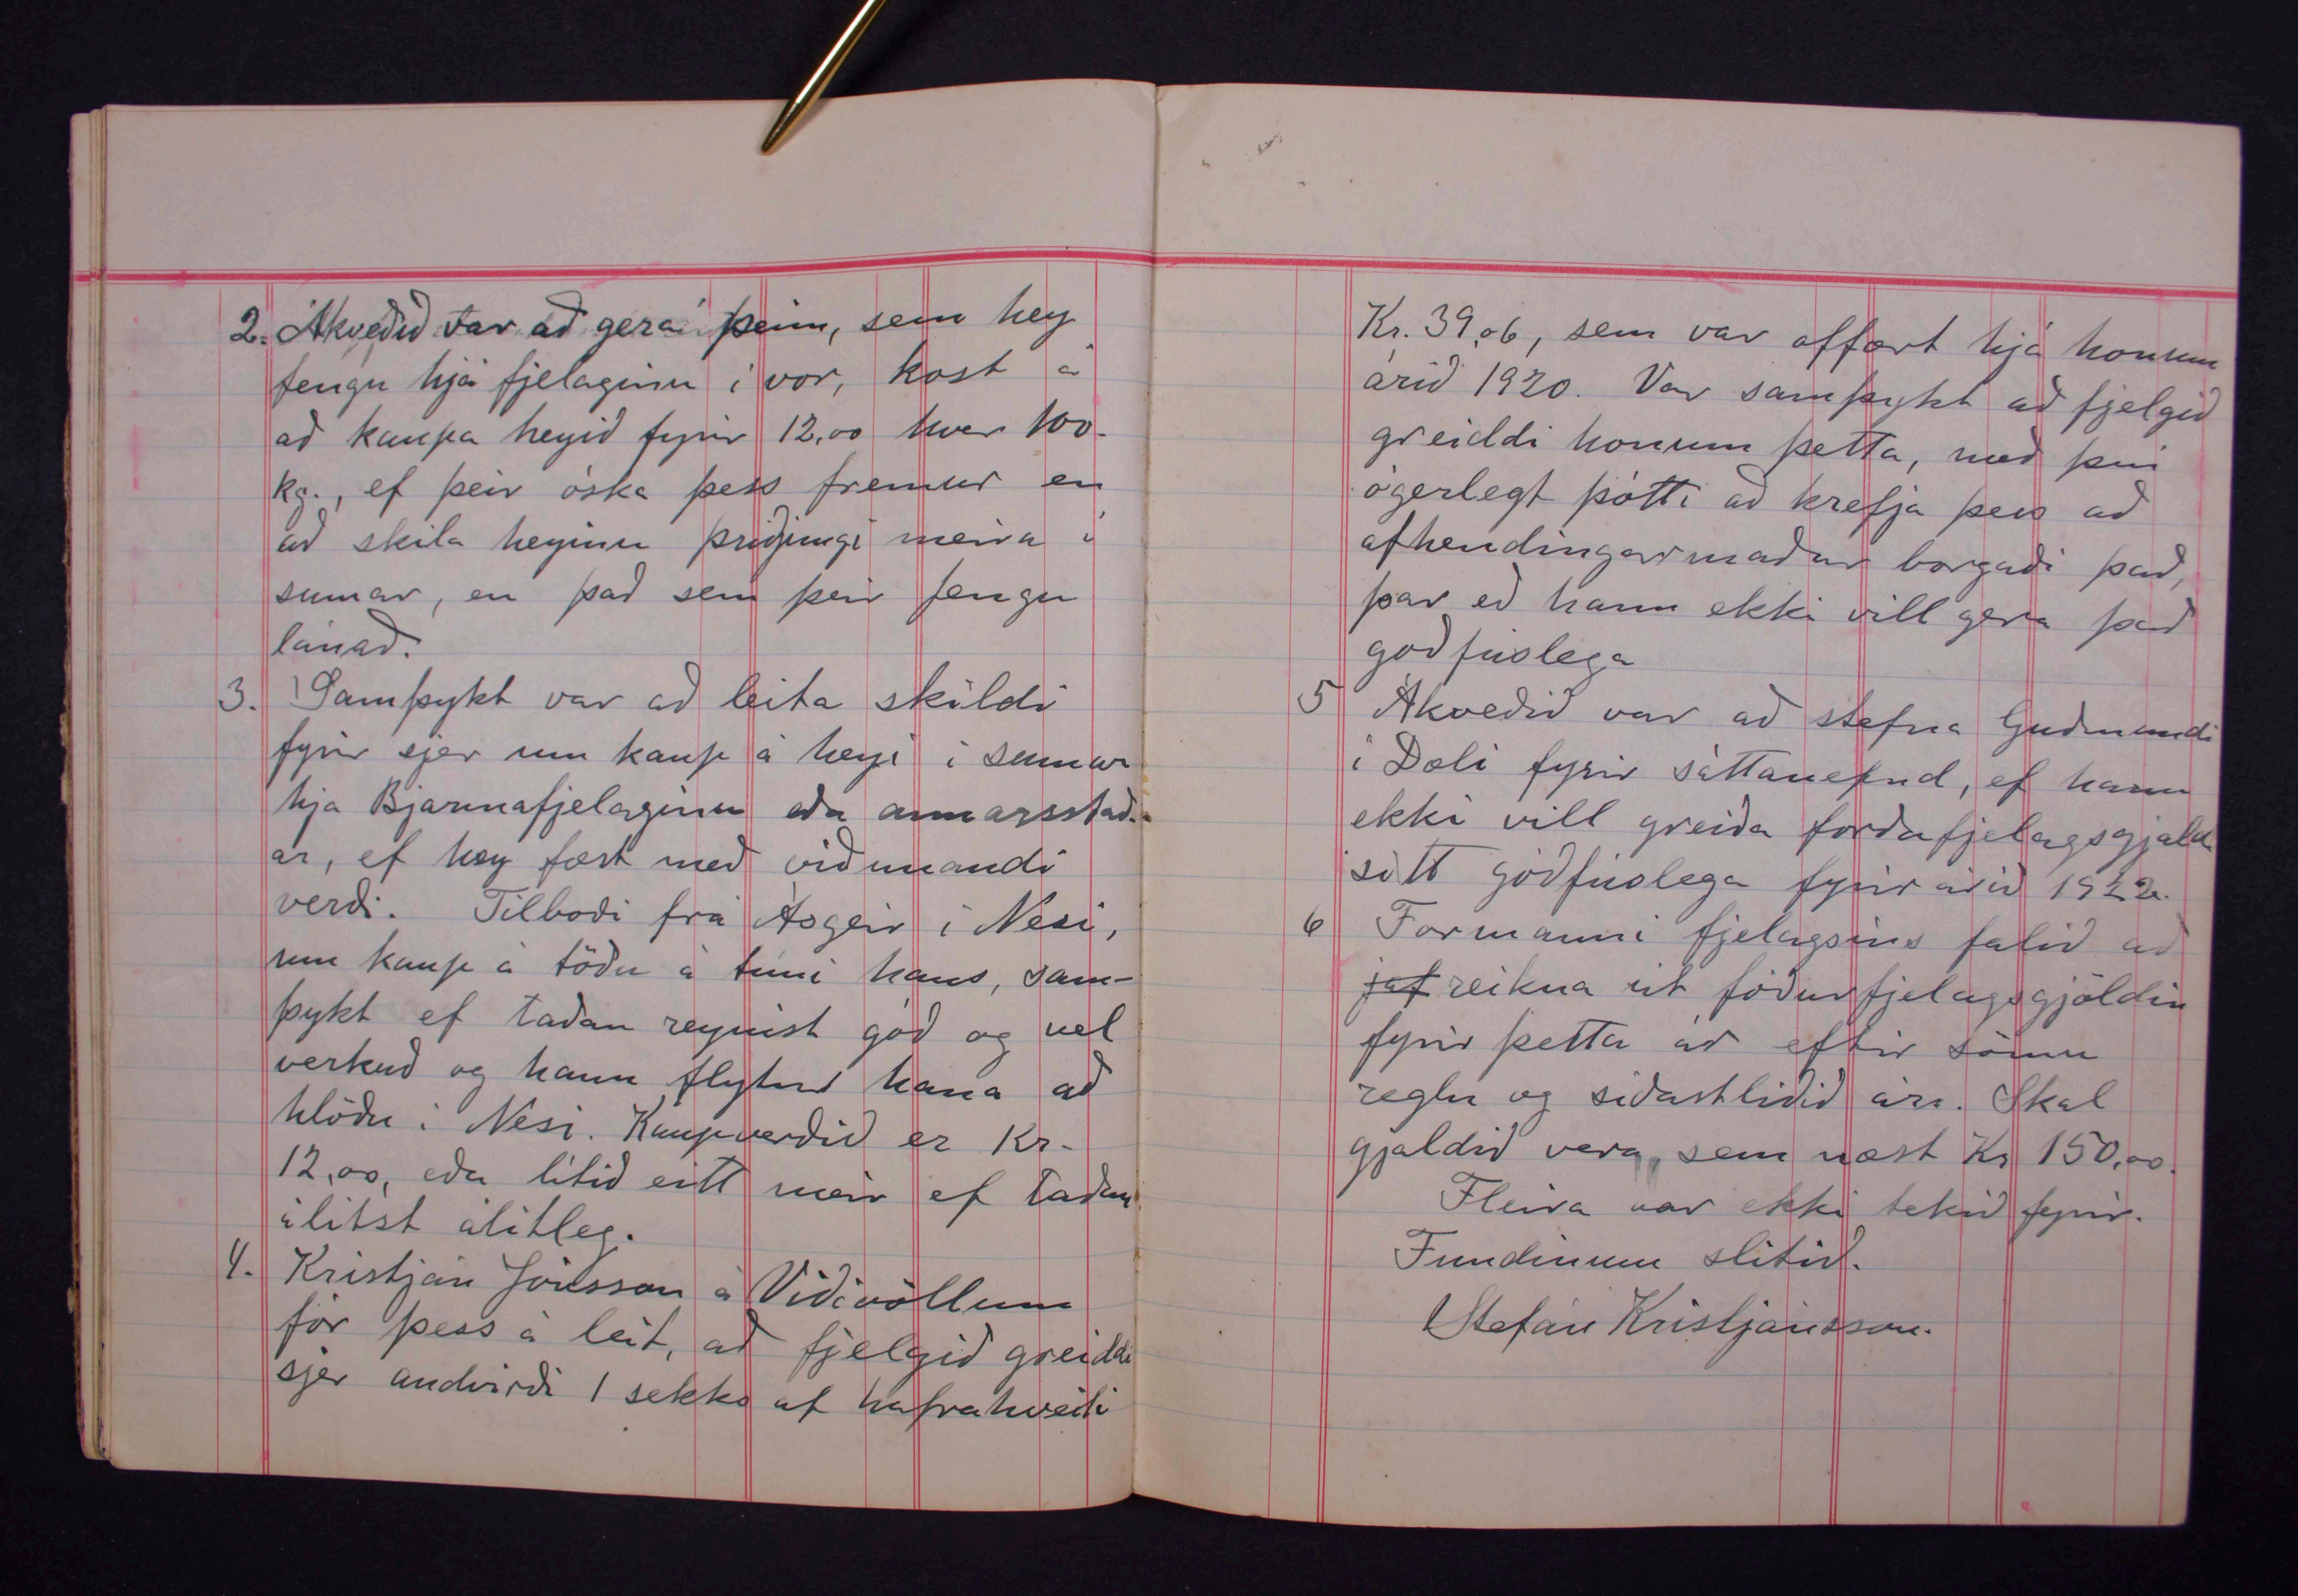 2. Ákveðið var að gera þeim, sem hey
fengu hjá fjelaginu í vor, kost á
að kaupa heyið fyrir 12,00 hver 100
kg., ef þeir óska þess fremur en
að skila heyinu þriðjungi meira í
sumar, en það sem þeir fengu
lánað.
3. Samþykt var að leita skildi
fyrir sjer um kaup á heyi í sumar
hja Bjarmafjelaginu eða annarsstað-
ar, ef hey fæst með viðunandi
verði. Tilboði frá Ásgeir í Nesi,
um kaup á töðu á túni hans, sam-
þykt ef taðan reynist góð og vel
verkuð og hann flytur hana að
hlöðu í Nesi. Kaupverðið er Kr.
12,00, eða lítið eitt meir ef taðan
álitst álitleg.
4. Kristján Jónsson á Víðivöllum
fór þess á leit, að fjelgið greiddi
sjer andvirði 1 sekks af hafrahveiti
Kr. 39,06, sem var offært hjá honum
árið 1920. Var samþykt að fjelgið
greiddi honum þetta, með því
ógerlegt þótti að krefja þess að
afhendingarmaður borgaði það,
þar eð hann ekki vill gera það
goðfúslega
5 Ákveðið var að stefna Guðmundi
í Dæli fyrir sáttanefnd, ef hann
ekki vill greiða forðafjelagsgjald
sitt góðfúslega fyrir árið 1922.
6 Formanni fjelagsins falið að
jaf reikna út fóðurfjelagsgjöldin
fyrir þetta ár eftir sömu
reglu og síðastliðið ár. Skal
gjaldið vera, sem næst Kr 150,00.
Fleira var ekki tekið fyrir.
Fundinum slitið.
Stefán Kristjánsson.